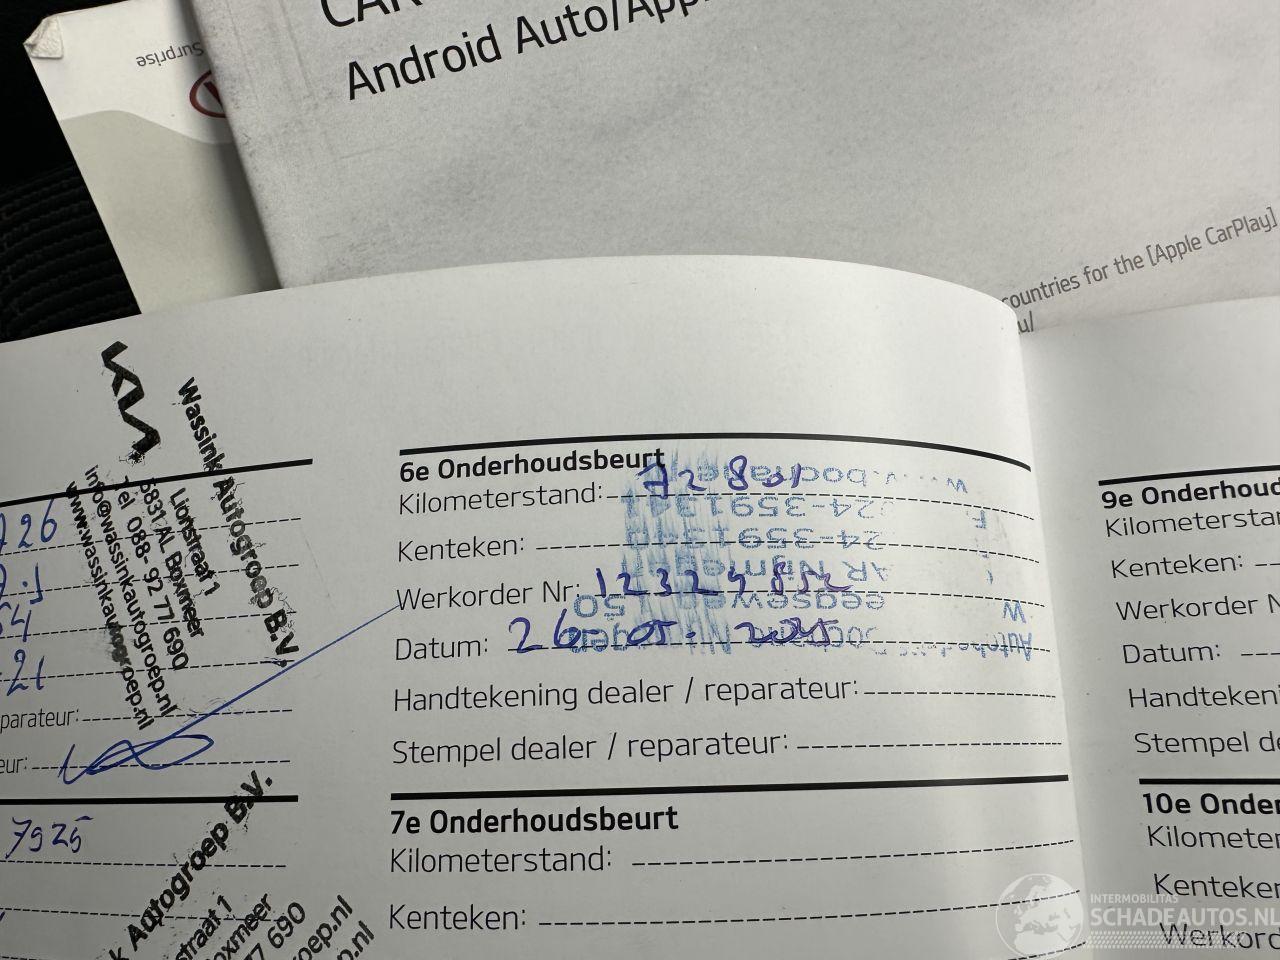 Surprise
CAR
Android Auto/Appl
countries for the [Apple CarPlay]
u/
Wassink Autogroep B.V.
Lionstraat 1
5831 AL Boxmeer
Tel 088- 92 77 690
info@wassinkautogroep.nl
www.wassinkautogroep.nl
726
54
-21
parateur:
eur:
7925
k Autogroep B.V.
straat 1
oxmeer
77 690
roep.nl
p.nl
6e Onderhoudsbeurt
Kilometerstand: 72801
Kenteken:
Werkorder Nr: 12324852
Datum: 26-05-2025
Handtekening dealer / reparateur:
Stempel dealer / reparateur:
024-3591341
24-3591340
AR Nijmegen
7e Onderhoudsbeurt
Kilometerstand:
Kenteken:
9e Onderhoud
Kilometerstan
Kenteken:
Werkorder N
Datum:
Handtekening
Stempel de
10e Onder
Kilometer
Kenteken
Werkord
INTERMOBILITAS
SCHADEAUTOS.NL